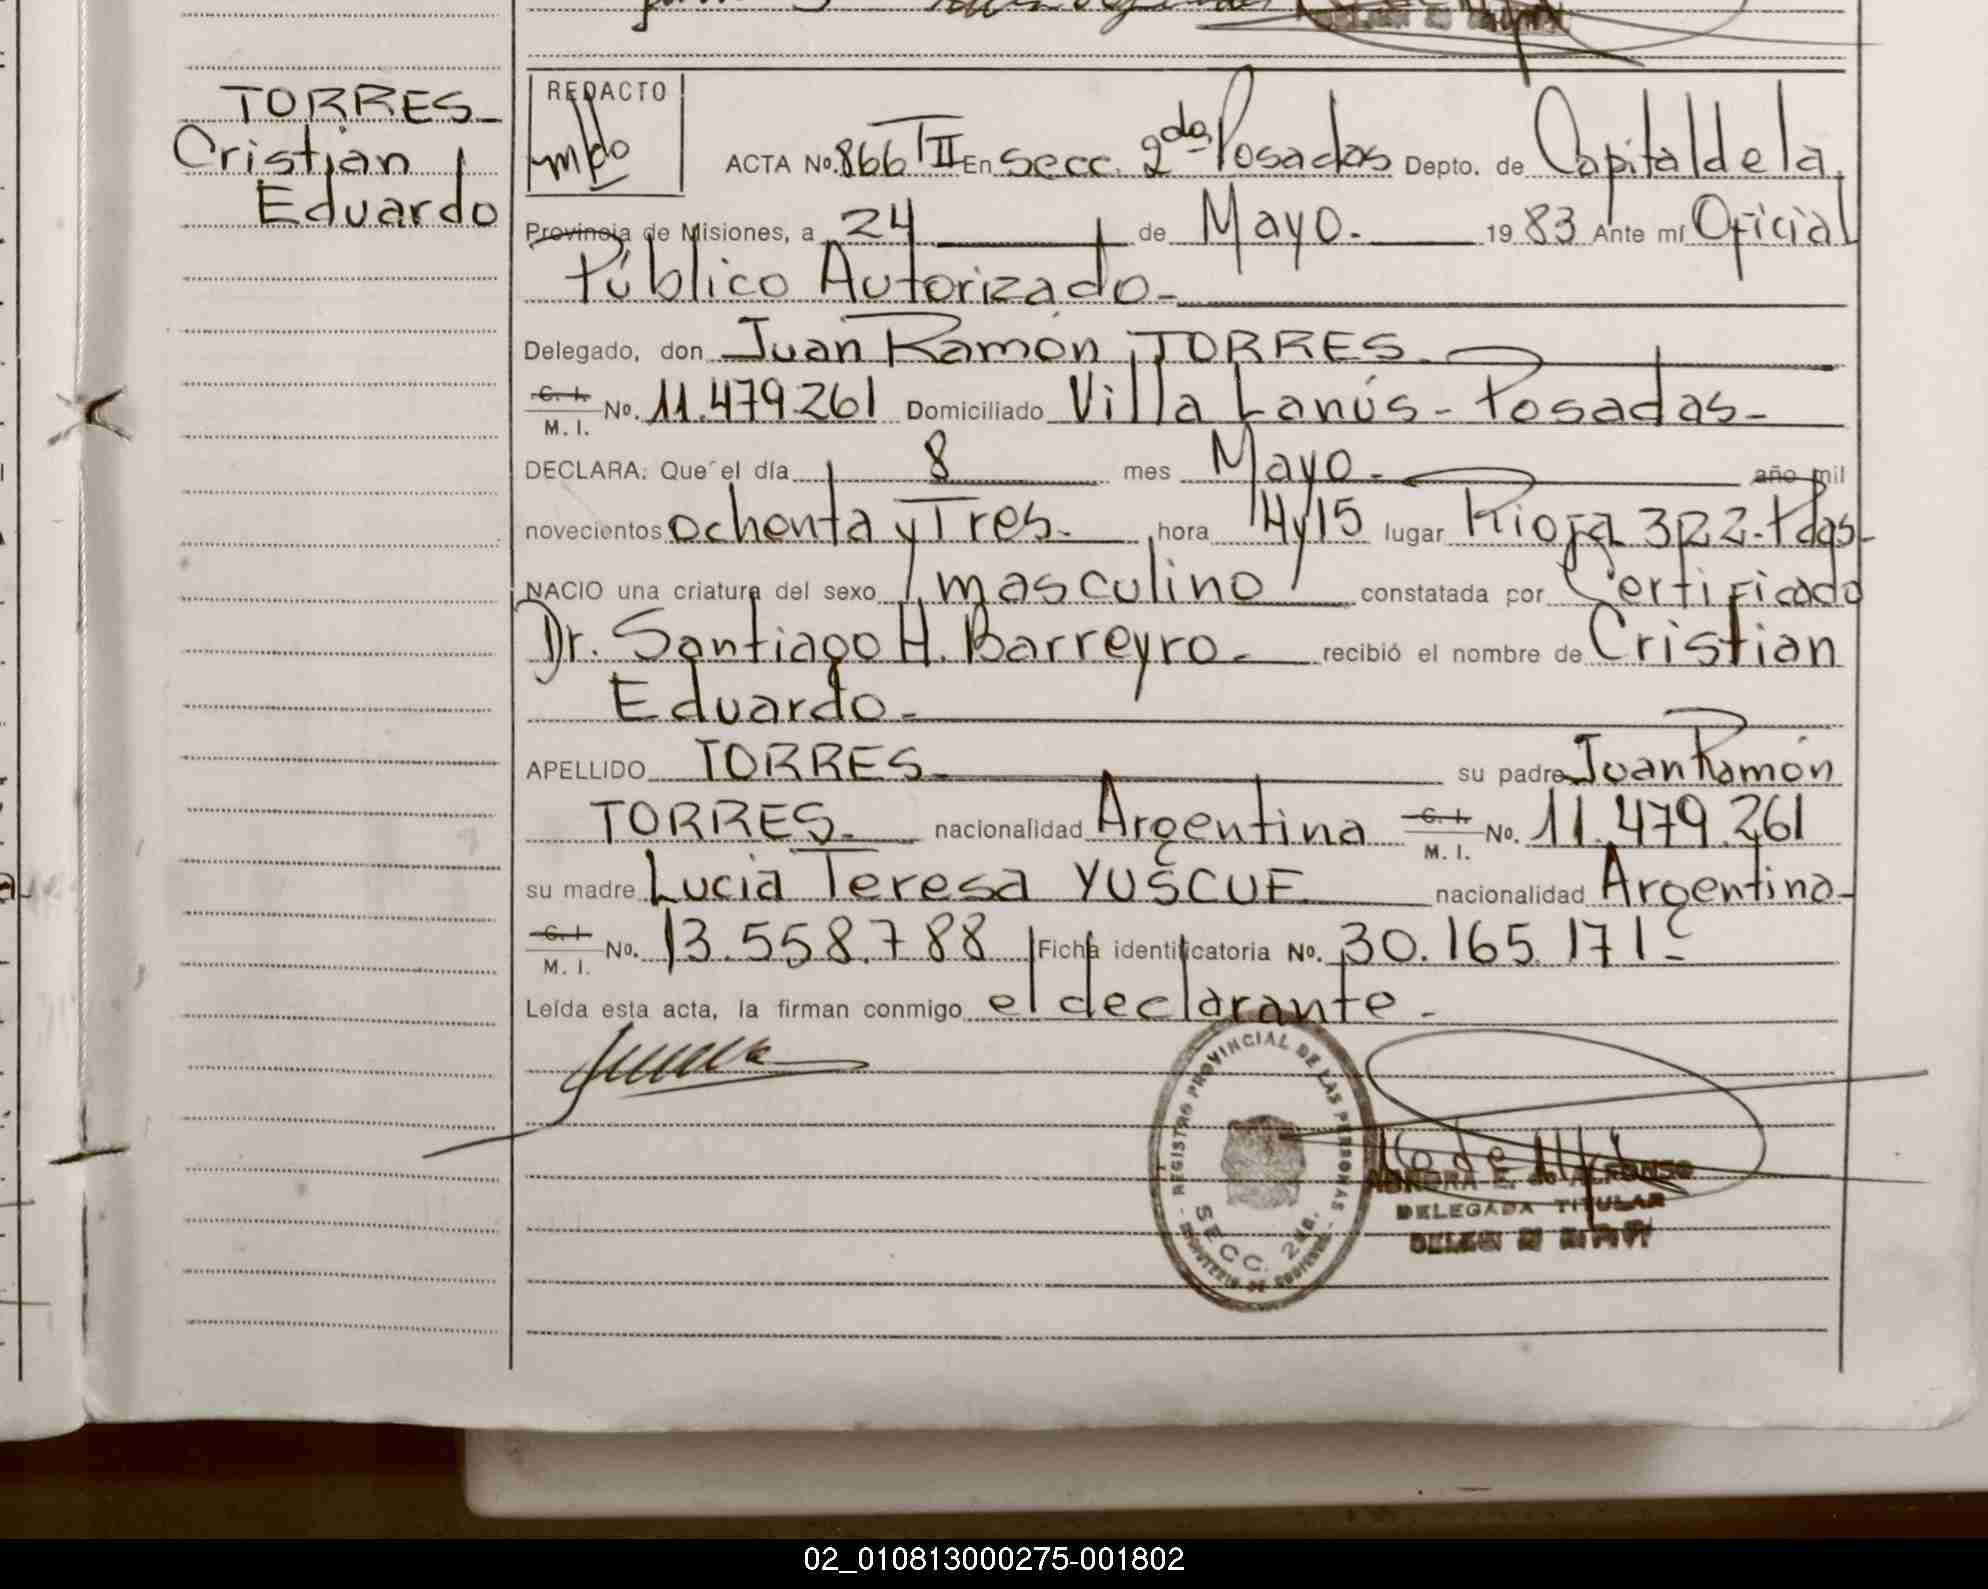 TORRES
Cristian
Eduardo
REDACTO
ACTA No. 866 TII En Secc. 2da Posadas Depto. de Capital de la
Provincia de Misiones, a 24 de Mayo. 1983 Ante mí Oficial
Público Autorizado
Delegado, don Juan Ramón TORRES
C. I. M. I. No. 11.479.261 Domiciliado Villa Lanús - Posadas
DECLARA: Que el día 8 mes Mayo. año mil
novecientos ochenta y Tres. hora 14y15 lugar Rioja 322. Pdas
NACIO una criatura del sexo masculino constatada por Certificado
Dr. Santiago H. Barreyro. recibió el nombre de Cristian
Eduardo
APELLIDO TORRES su padre Juan Ramón
TORRES. nacionalidad Argentina C. I. M. I. No. 11.479.261
su madre Lucia Teresa YUSCUE nacionalidad Argentina
C. I. M. I. No. 13.558.788 Ficha identificatoria No. 30.165.171
Leída esta acta, la firman conmigo el declarante.
REGISTRO PROVINCIAL DE LAS PERSONAS
SECC. 2da.
MINISTERIO DE GOBIERNO
E. de ALFONSO
DELEGADA TITULAR
02_010813000275-001802